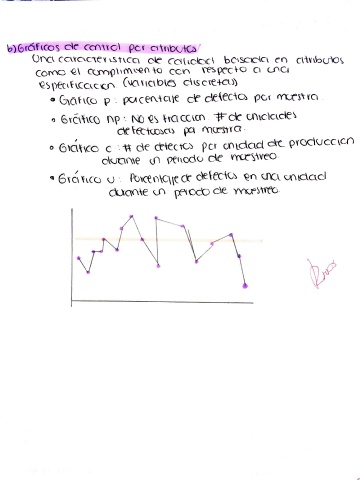 b) Gráficos de control por atributos
Una caracteristica de calidad basada en atributos
como el cumplimiento con respecto a una
especificación (variables discretas)
• Gráfico p: porcentaje de defectos por muestra.
• Gráfico np: No es fracción # de unidades
defectuosas por muestra.
• Gráfico c: # de defectos por unidad de producción
durante un periodo de muestreo
• Gráfico u: Porcentaje de defectos en una unidad
durante un periodo de muestreo